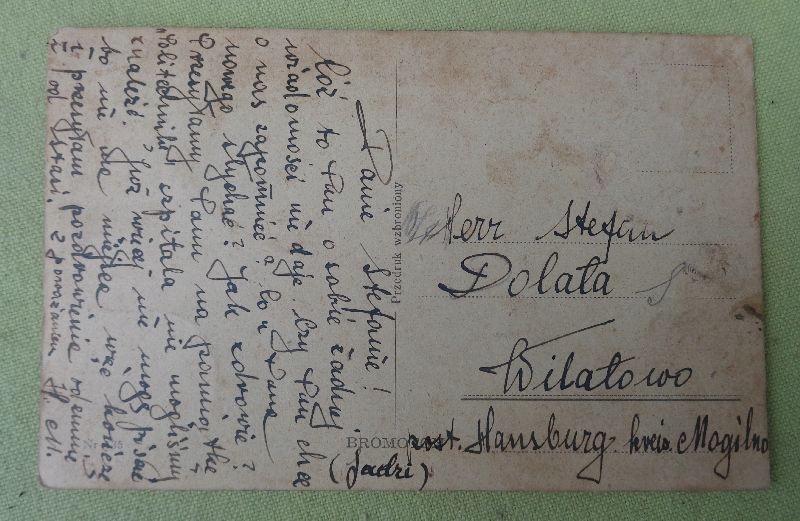 Panie Stefanie!
Cóż to Pan o sobie żadnej
wiadomości nie daje. Czy Pan chce
o nas zapomnieć? Co u Pana
nowego słychać? Jak zdrowie?
Przesyłamy Panu na
"Politechniki szpitala nie mogliśmy
znaleźć. Już więcej nie mogę pisać
bo nie ma miejsca więc kończę
i przesyłam pozdrowienie odemnie
i od Stasi. z poważaniem H. M.
(Jadzi)
Przedruk wzbroniony
Herr Stefan
Dolata
Wilatowo
post. Hansburg kreis. Mogilno